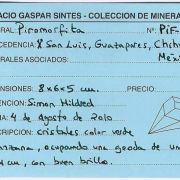 ACIO GASPAR SINTES - COLECCION DE MINERA
RAL: Piromorfita Nº PiF-
CEDENCIA: San Luis, Guatapares, Chih
ERALES ASOCIADOS: Méxi
ENSIONES: 8x6x5 cm. PRECIO:
ENCIÓN: Simon Mildred
A: 4 de agosto de 2010
CRIPCIÓN: cristales color verde
anzana, ocupando una geoda de un
4 cm, con buen brillo.